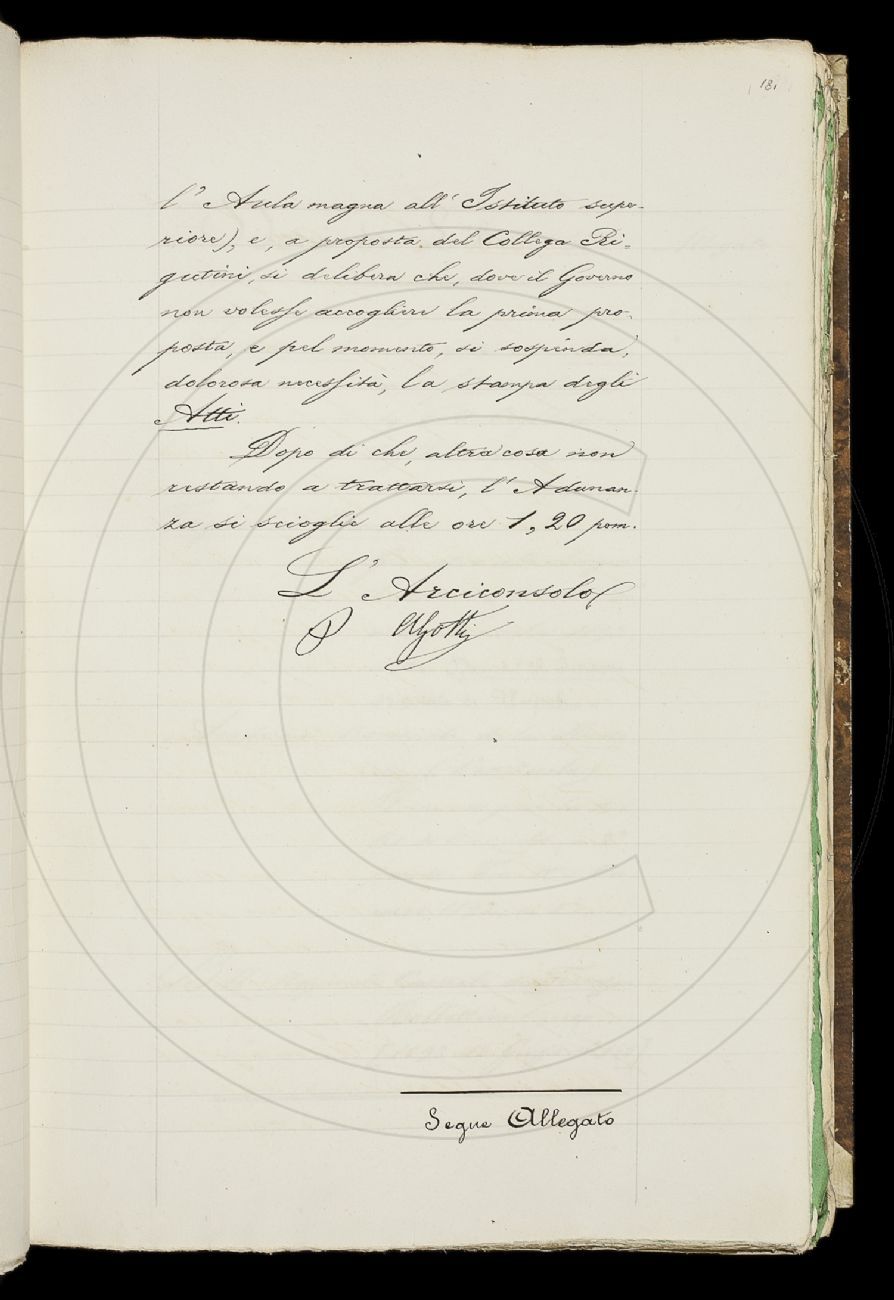 181
l'Aula magna all'Istituto supe-
riore), e, a proposta del Collega Ri-
gutini, si delibera che, dove il Governo
non volesse accogliere la prima pro-
posta, e pel momento, si sospenda,
dolorosa necessità, la stampa degli
Atti.
Dopo di che, altra cosa non
restando a trattarsi, l'Adunan-
za si scioglie alle ore 1,20 pom.
L'Arciconsolo
Segue Allegato